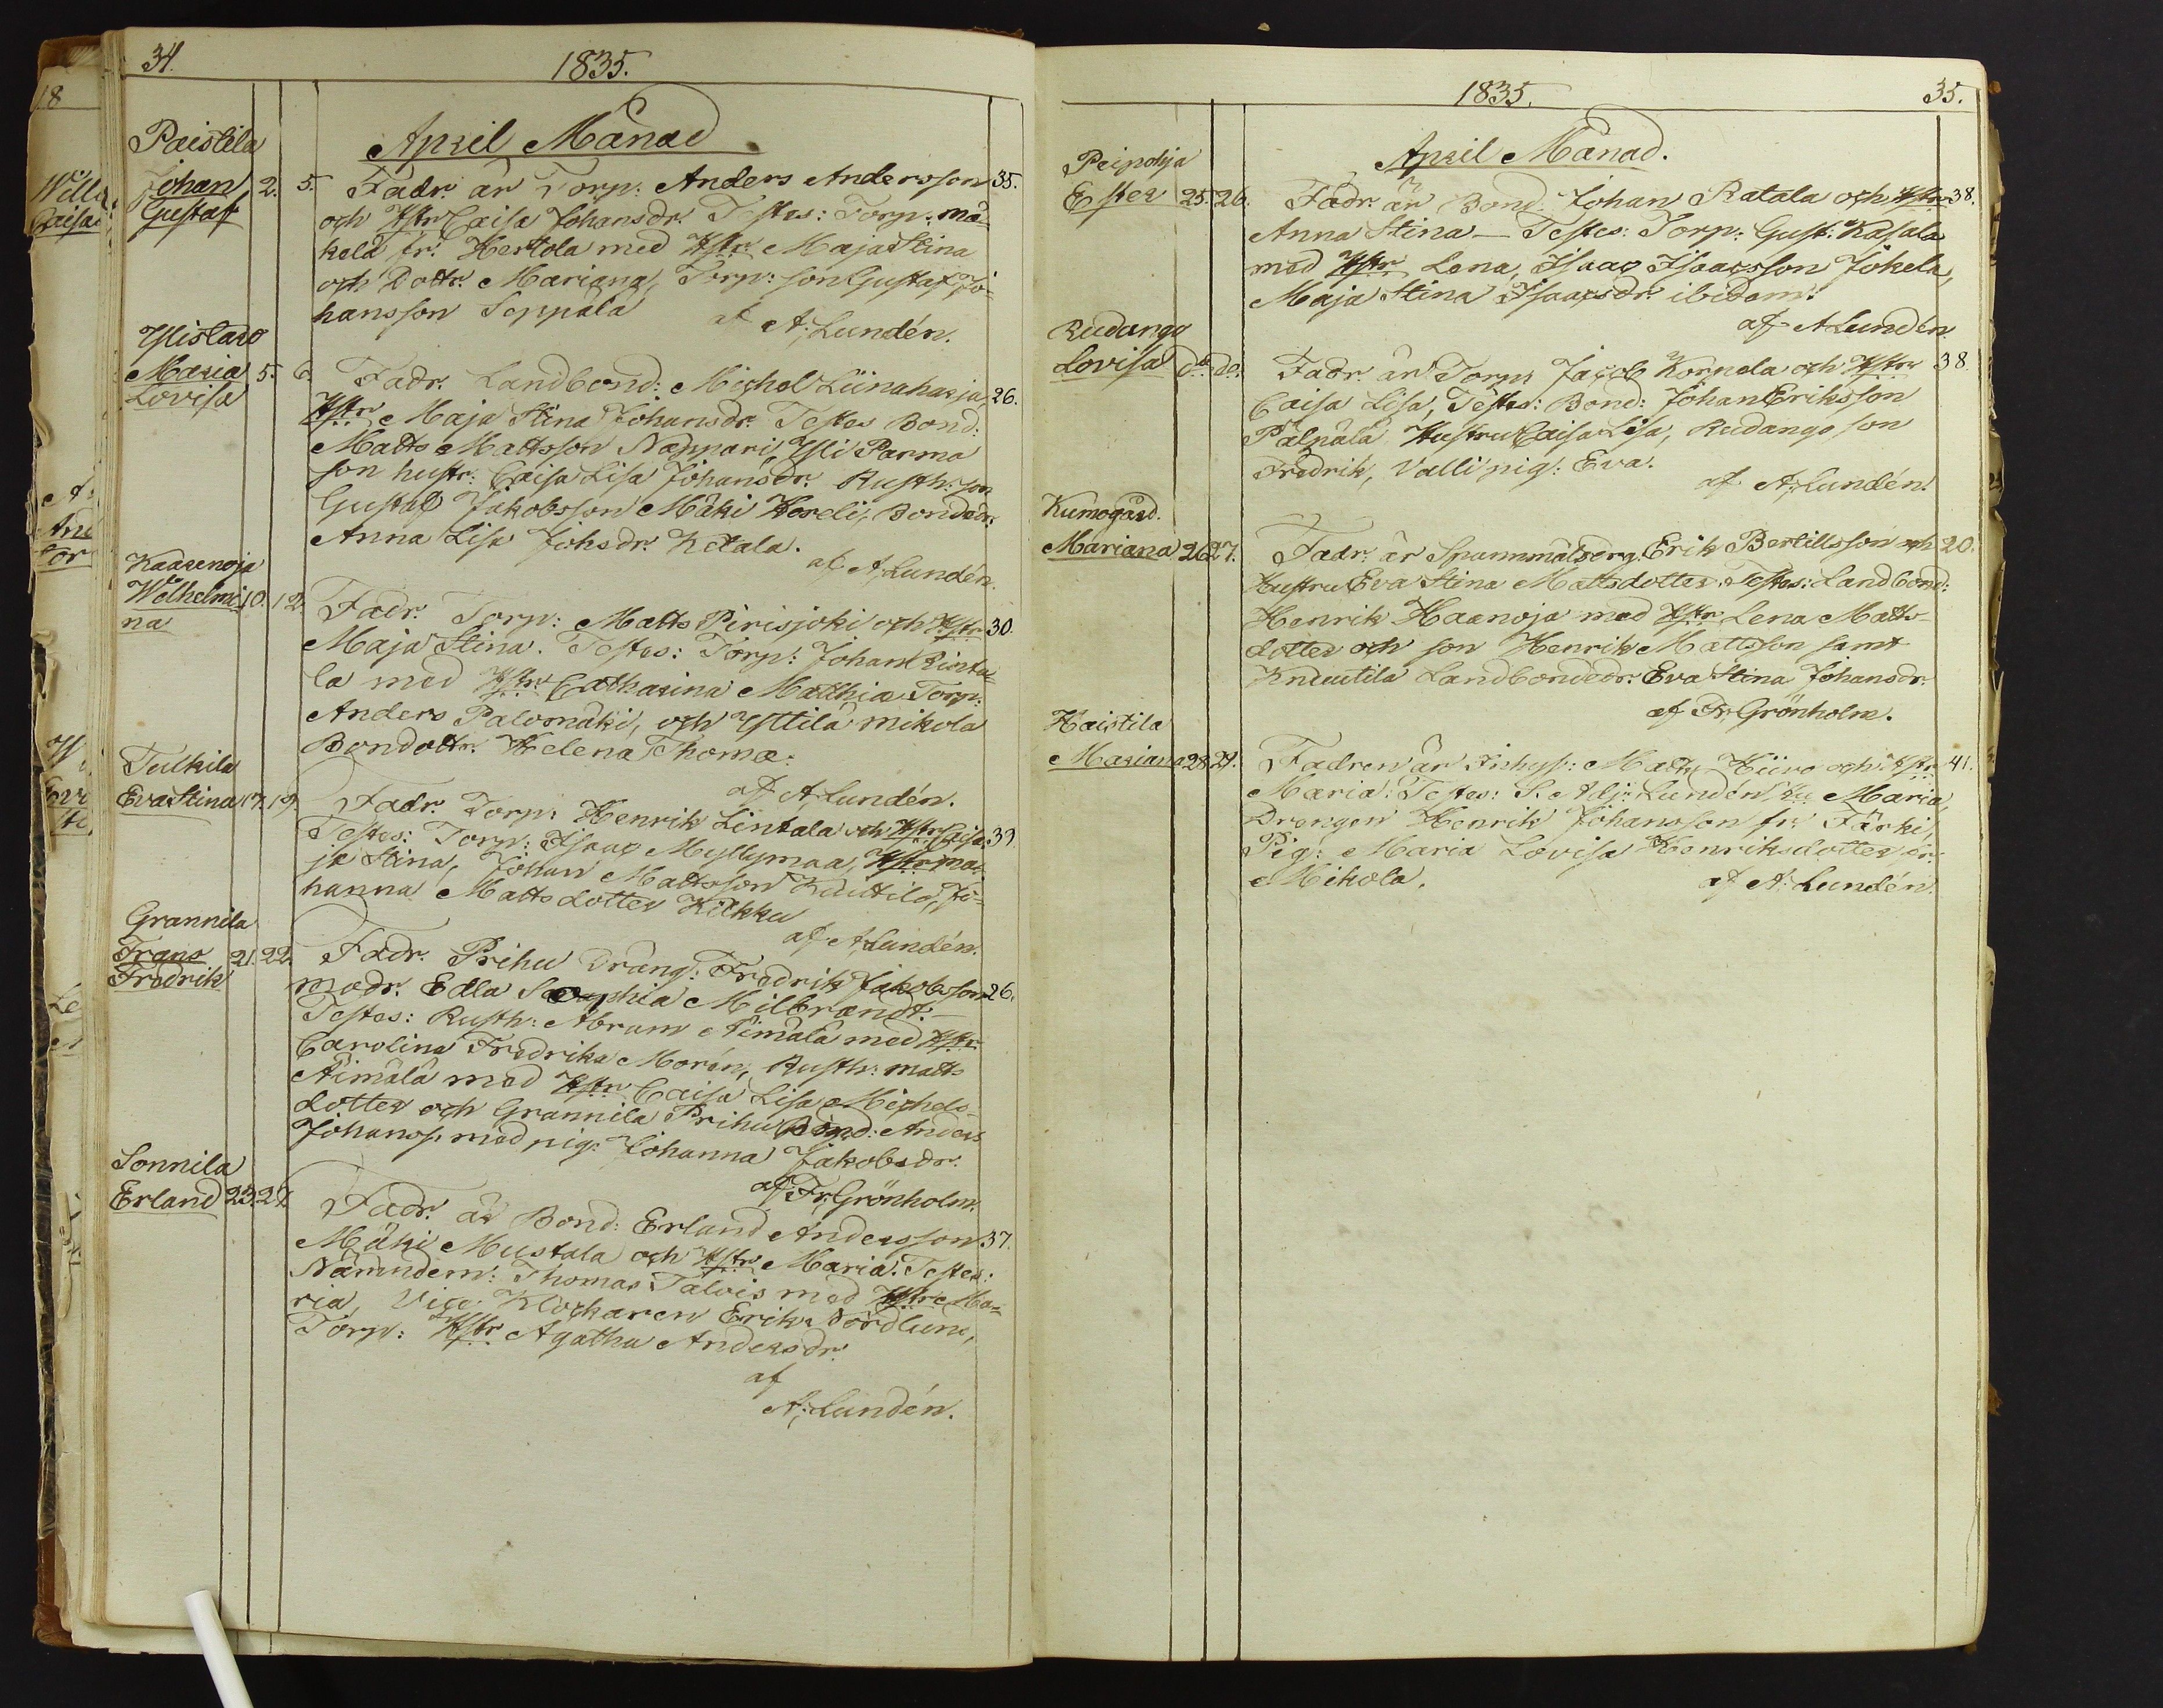 34.
1835.
April Månad
Paistila
Johan 2. 5.
Gustaf
Fadr. är Torp: Anders Andersson 35.
och Hstr Caisa Johansdr. Testes: Torp: Mä-
kelä fr. Hertola med Hstr Maja Stina
och Dottr. Mariana, Torp: son Gustaf Jo-
hansson Seppälä
af A; Lundén.
Ylistaro
Maria 5. 6.
Lovisa
Fadr. Landbond: Michel Liinaharja, 26.
Hstr Maja Stina Johansdr. Testes Bond:
Matts Mattsson Näppari, Yli Parma
son hustr: Caisa Lisa Johansdr. Rusth: son
Gustaf Jakobsson Mäki Hordi, Bondedr.
Anna Lisa Johsdr. Ketala.
af A; Lundén.
Kaarenoja
Wilhelmi- 10. 12
na
Fadr. Torp: Matts Pirisjoki och Hstr 30.
Maja Stina. Testes: Torp: Johan Rinta-
la med Hstr Catharina Matthiæ Torp:
Anders Palomäki, och Yttilä Mikola
Bondottr. Helena Thomæ.
af A; Lundén.
Tulkila
Eva Stina 17. 19.
Fadr. Torp: Henrik Lintala och Hstr Caisa. 39
Testes: Torp: Isaac Myllymaa, Hstr Ma-
ja Stina, Johan Mattsson Knuttila, Jo-
hanna Matts dotter Kilkku
af A; Lundén.
Grannila
Frans 21. 22.
Fredrik
Fadr. Prihu Dräng: Fredrik Jakobsson 26.
Modr. Edla Sophia Milbrandt. —
Testes: Rusth: Abram Äimälä med Hstr
Carolina Fredrika Morén, Rusth: Matts
Äimälä med Hstr Caisa Lisa Michels-
dotter och Grannila Prihu Bond: Anders
Johanss. med pig: Johanna Jakobsdr.
af Fr; Grönholm.
Sonnila
Erland 23. 27.
Fadr. är Bond: Erland Andersson 37.
Mäki Mustala och Hstr Maria. Testes:
Nämndem: Thomas Talvis med Hstr Ma-
ria, Vice Klockaren Erik Nordlund,
Torp: Hstr Agatha Andersdr.
af
A; Lundén.
1835.
35.
April Månad.
Peipohja
Ester 25. 26.
Fadr. är Bond: Johan Ratala och Hstr 38.
Anna Stina — Testes: Torp: Gust: Kasala
med Hstr Lena, Isaac Isaacsson Jokela,
Maja Stina Isaacsdr. ibidem.
af A Lundén.
Rudanga
Lovisa do do.
Fadr. är Torp: Jacob Kornela och Hstr 38.
Caisa Lisa, Testes: Bond: Johan Eriksson
Pälpälä Hustru Caisa Lisa, Rudango son
Fredrik, Valli pig: Eva.
af A; Lundén.
Kumogård.
Mariana 26 27.
Fadr. är Spannmålsdrg. Erik Bertillsson och 20.
Hustru Eva Stina Mattsdotter. Testes: Landbond:
Henrik Haanoja med Hstr Lena Matts-
dotter och son Henrik Mattsson samt
Knuutila Landbondedr. Eva Stina Johansdr.
af Fr; Grönholm.
Haistila
Mariana 28 29.
Fadren är Inhys: Matts Hiiro och Hstr 41.
Maria. Testes: S. Adj: Lundén, Maria,
Drengen Henrik Johansson fr. Färki,
Pig: Maria Lovisa Henriksdotter fr.
Mikola.
af A: Lundén.